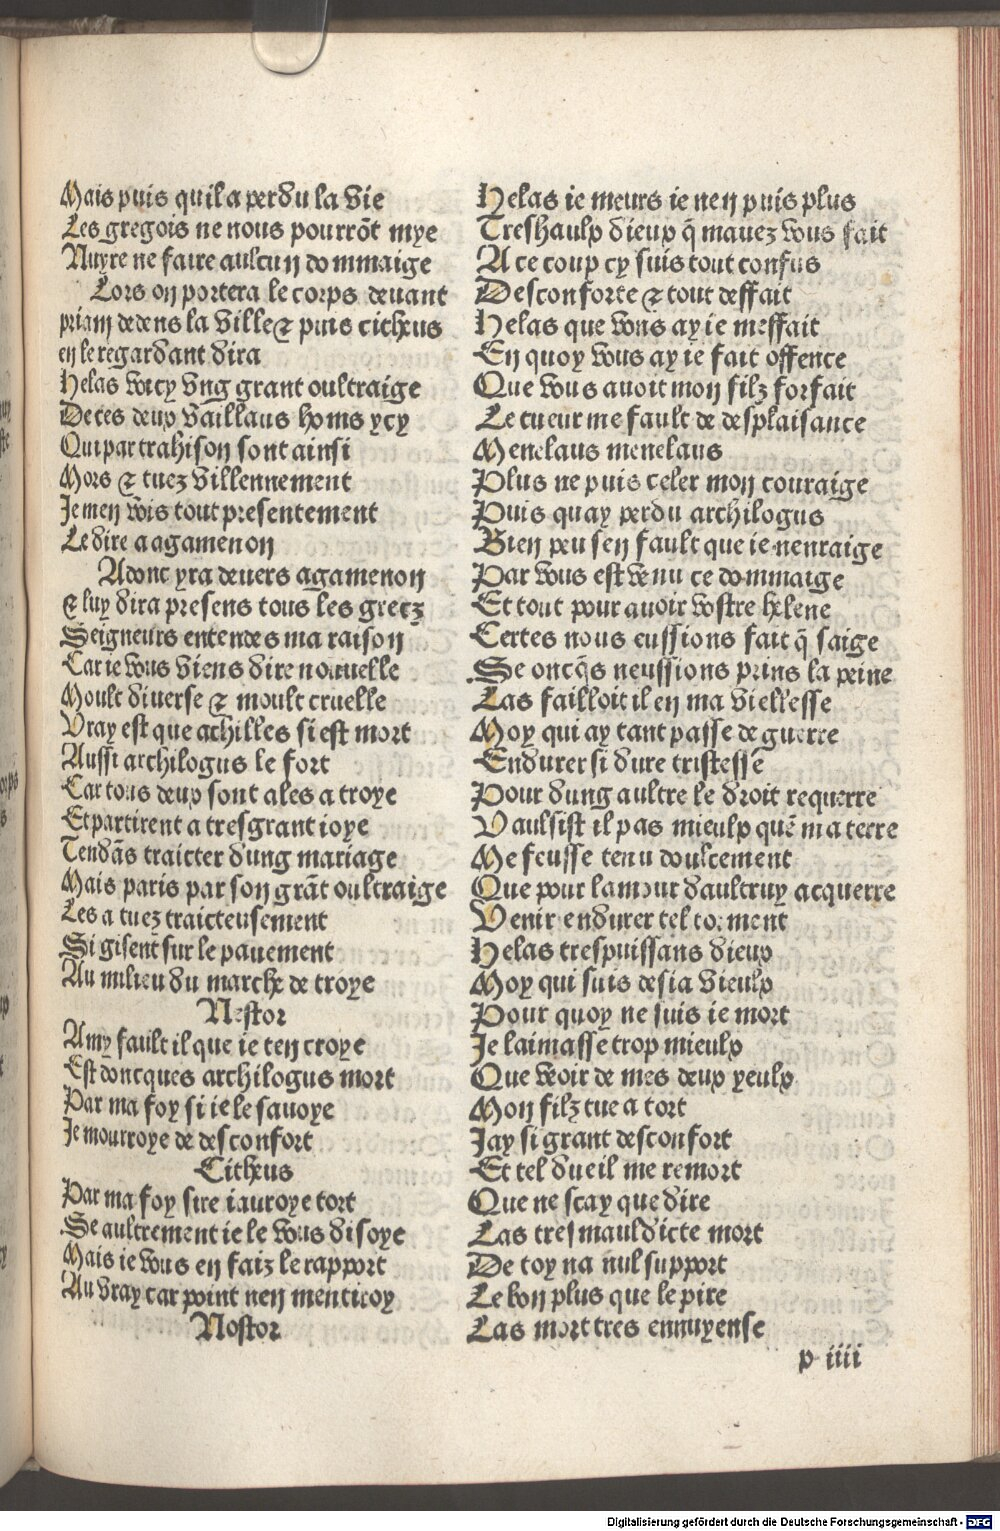 Mais puis quil a perdu la vie
Les gregois ne nous pourrōt mye
Nuyre ne faire aulcun dommaige
Lors on portera le corps deuant
priam dedens la ville & puis citheus
en le regardant dira
Helas voicy vng grant oultraige
De ces deux vaillans homs ycy
Qui par trahison sont ainsi
Mors & tuez villennement
Je men vois tout presentement
Le dire a agamenon
Adonc yra deuers agamenon
& luy dira presens tous les grecz
Seigneurs entendes ma raison
Car ie vous viens dire nouuelle
Moult diuerse & moult cruelle
Vray est que achilles si est mort
Aussi archilogus le fort
Car tous deux sont ales a troye
Et partirent a tresgrant ioye
Tendās traicter dung mariage
Mais paris par son grāt oultraige
Les a tuez traicteusement
Si gisent sur le pauement
Au milieu du marche de troye
Nestor
Amy fault il que ie ten croye
Est doncques archilogus mort
Par ma foy si ie le sauoye
Je mourroye de desconfort
Citheus
Par ma foy sire iauroye tort
Se aultrement ie le vous disoye
Mais ie vous en faiz le rapport
Au vray car point nen mentiroy
Nostor
Helas ie meurs ie nen puis plus
Treshaulx dieux q̄ mauez vous fait
A ce coup cy suis tout confus
Desconforte & tout deffait
Helas que vous ay ie meffait
En quoy vous ay ie fait offence
Que vous auoit mon filz forfait
Le cueur me fault de desplaisance
Menelaus menelaus
Plus ne puis celer mon couraige
Puis quay perdu archilogus
Bien peu sen fault que ie nenraige
Par vous est venu ce dommaige
Et tout pour auoir vostre helene
Certes nous eussions fait q̄ saige
Se oncq̄s neussions prins la peine
Las failloit il en ma viellesse
Moy qui ay tant passe de guerre
Endurer si dure tristesse
Pour dung aultre le droit requerre
Vaulsist il pas mieulx quē ma terre
Me feusse tenu doulcement
Que pour lamour daultruy acquerre
Venir endurer tel torment
Helas trespuissans dieux
Moy qui suis desia vieulx
Pour quoy ne suis ie mort
Je laimasse trop mieulx
Que veoir de mes deux yeulx
Mon filz tue a tort
Jay si grant desconfort
Et tel dueil me remort
Que ne scay que dire
Las tres mauldicte mort
De toy na nul support
Le bon plus que le pire
Las mort tres ennuyense
p iiii
Digitalisierung gefördert durch die Deutsche Forschungsgemeinschaft - DFG